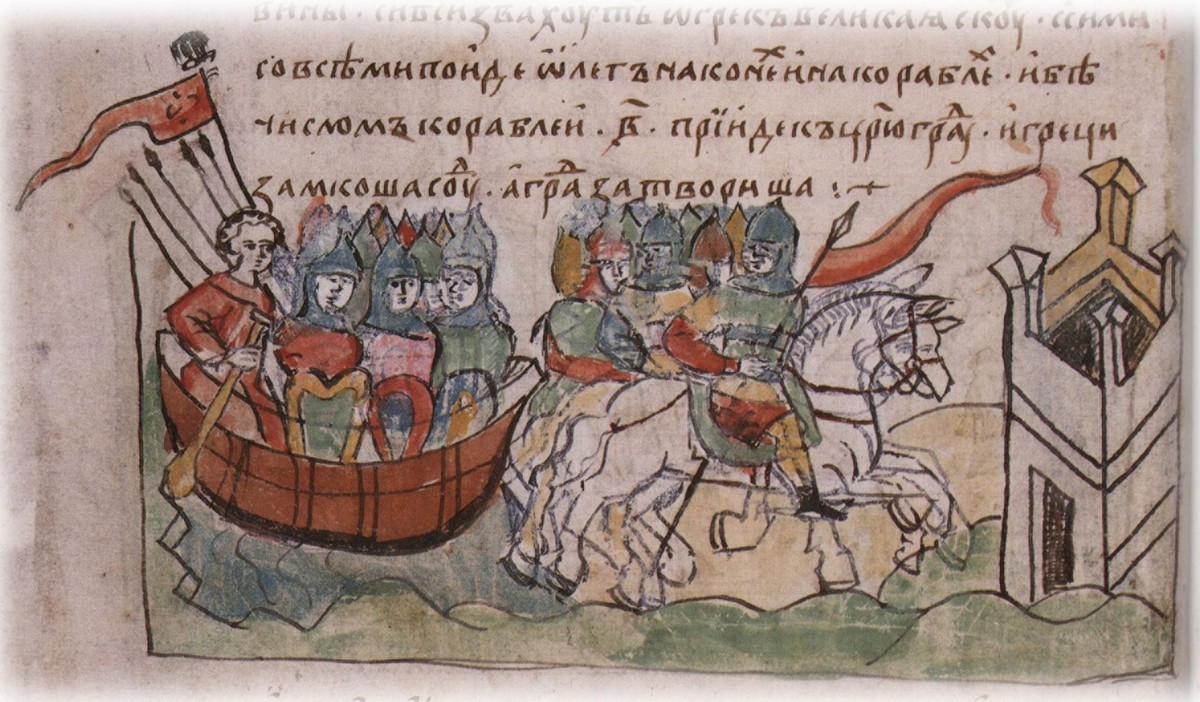 вины · си вси звахоуть ѿ грекъ великаꙗ скоу · с сими
со всѣми поиде ѿлегъ на конеⷯ и на кораблеⷯ · и бѣ
числомъ кораблеи · в҃ · прїиде къ цр҃ю граⷣу · и греци
замкоша соуⷣ · а граⷣ затвориша :+